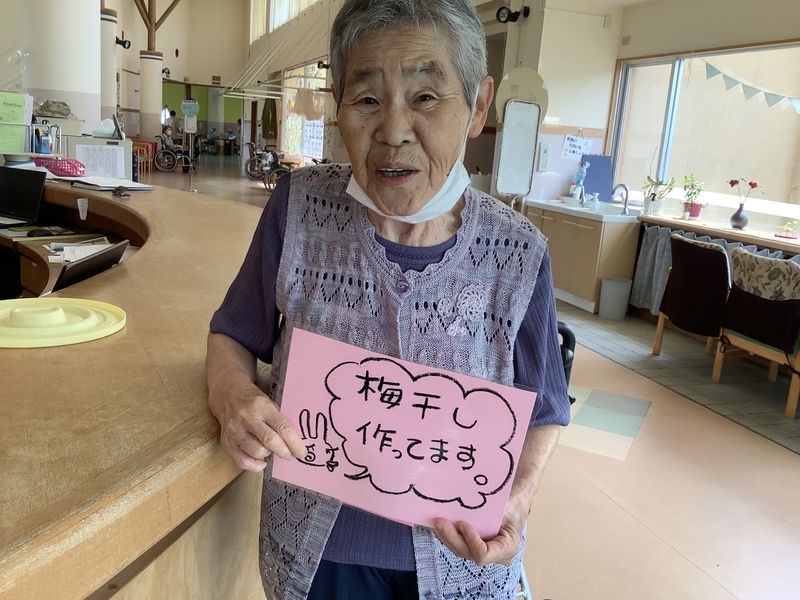 梅干し
作ってます。